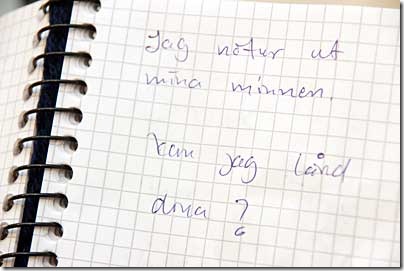 Jag nöter ut
mina minnen.
Kan jag lånd
dina?